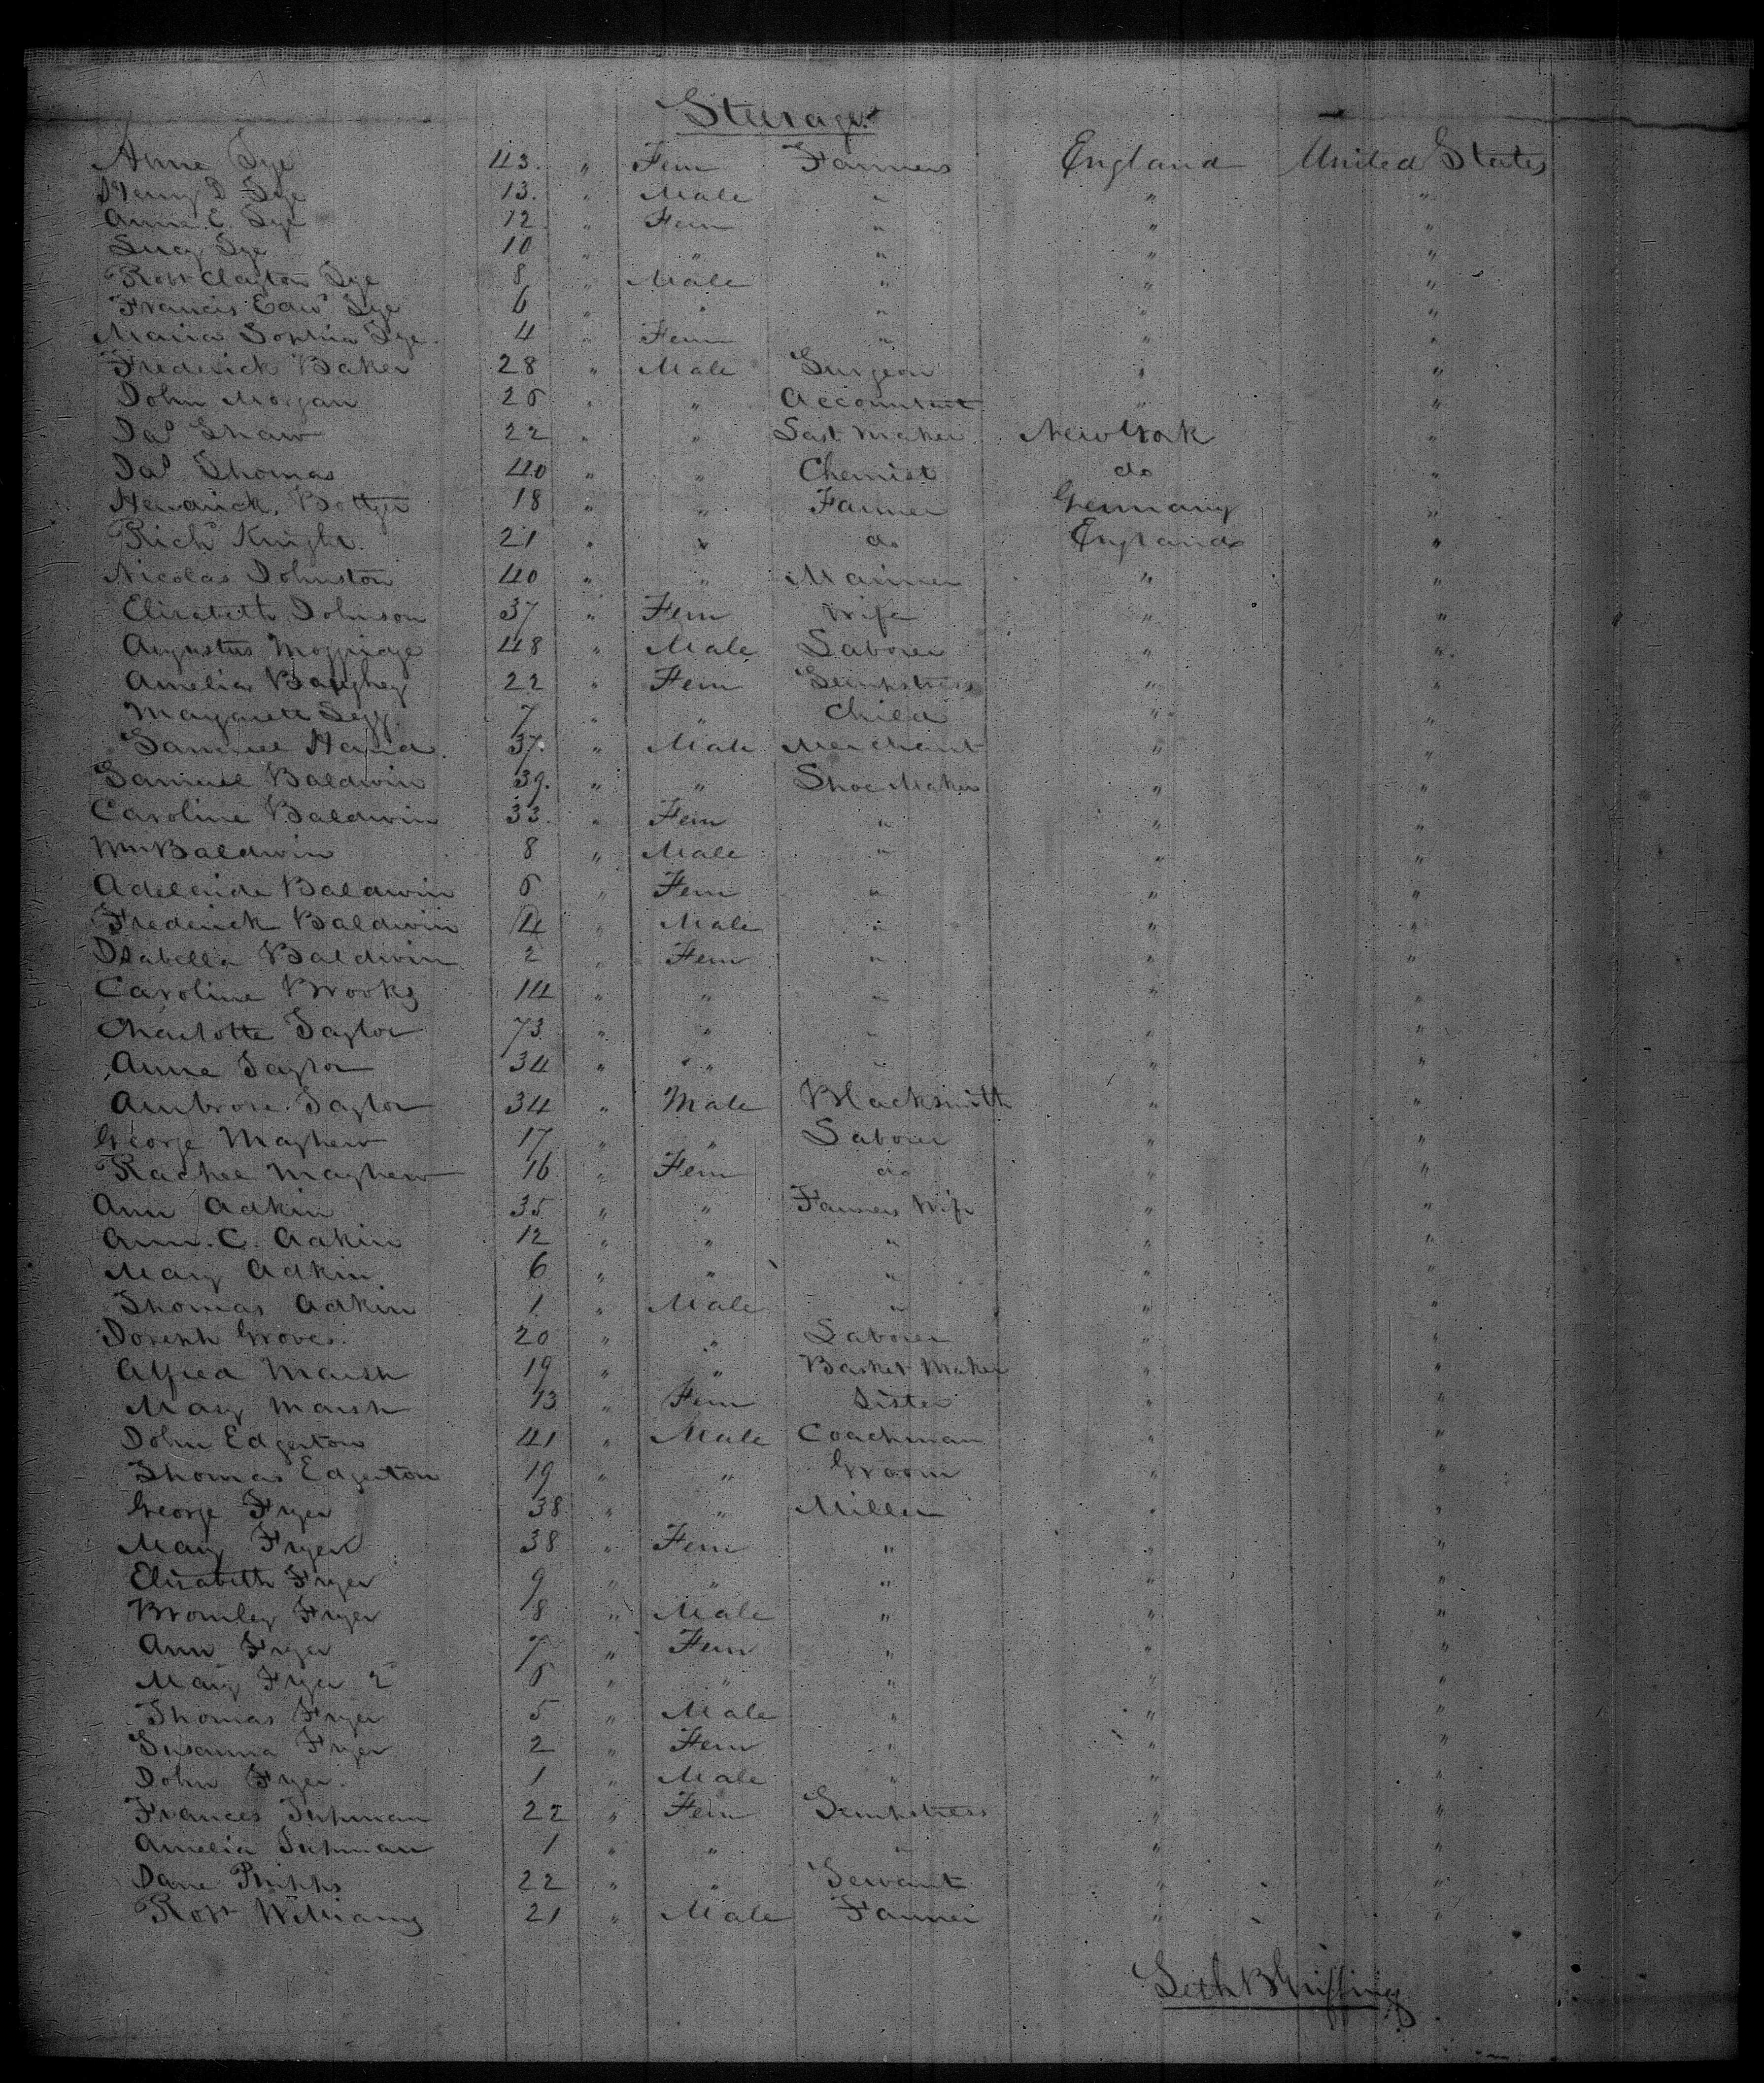 Steerage
Anne Tye 43. " Fem Farmers England United States
Henry D Tye 13. " Male " " "
Anne. E. Tye 12 " Fem " " "
Lucy Tye 10 " " " " "
Robt Clayton Tye 8 " Male " " "
Francis Edwd Tye 6 " " " " "
Maria Sophia Tye. 4 " Fem " " "
Frederick Baker 28 " Male Surgeon " "
John Morgan 26 " " Accountant " "
Jas Shaw 22 " " Last Maker New York "
Jas Thomas 40 " " Chemist do "
Hendrick. Bottger 18 " " Farmer Germany "
Richd Knight. 21 " " do England "
Nicolas Johnston 40 " " Mariner " "
Elizabeth Johnson 37 " Fem Wife " "
Augustus Moggridge 48 " Male Laborer " "
Amelia 22 " Fem Semphstress " "
Margarett Legg. 7 " " Child " "
Samuel Hand 37. " Male Merchant " "
Samuel Baldwin 39. " " Shoe Maker " "
Caroline Baldwin 33. " Fem " " "
Wm Baldwin 8 " Male " " "
Adelaide Baldwin 6 " Fem " " "
Frederick Baldwin 4 " Male " " "
Isabella Baldwin 2 " Fem " " "
Caroline Brooks 14 " " " " "
Charlotte Taylor 73 " " " " "
Anne Taylor 34 " " " " "
Ambrose. Taylor 34 " Male Blacksmith " "
George Mayhew 17 " " Laborer " "
Rachel Mayhew 16 " Fem do " "
Ann Adkin 35 " " Farmers Wife " "
Ann. C. Adkin 12 " " " " "
Mary Adkin 6 " " " " "
Thomas Adkin 1 " Male " " "
Joseph Groves. 20 " " Laborer " "
Alfred Marsh 19 " " Basket Maker " "
Mary Marsh 13 " Fem Sister " "
John Edgerton 41 " Male Coachman " "
Thomas Edgerton 19 " " Groom " "
George Fryer 38 " " Miller " "
Mary Fryer 38 " Fem " " "
Elizabeth Fryer 9 " " " " "
Bromley Fryer 8 " Male " " "
Ann Fryer 7 " Fem " " "
Mary Fryer 2 6 " " " " "
Thomas Fryer 5 " Male " " "
Susanna Fryer 2 " Fem " " "
John Fryer. 1 " Male " " "
Frances 22 " Fem Semphstress " "
Amelia 1 " " " " "
Jane Phipps 22 " " Servant " "
Robt Williams 21 " Male Farmer " "
Seth B Griffing